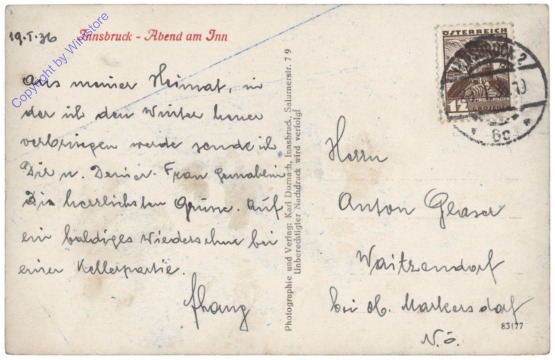 19.I.36
Innsbruck - Abend am Inn
Copyright by Winstore
Aus meiner Heimat, in
der ich den Winter heuer
verbringen werde sende ich
Dir u. Deiner Frau Gemahlin
die herrlichsten Grüsse. Auf
ein baldiges Wiedersehn bei
einer Kellerpartie.
Photographie und Verlag: Karl Dornach, Innsbruck, Salurnerstr. 79
Unberechtigter Nachdruck wird verfolgt
ÖSTERREICH
12
INNSBRUCK 2
* 6c *
Herrn
Anton Glaser
Waitzendorf
bei ob. Markersdorf
N.Ö.
83177